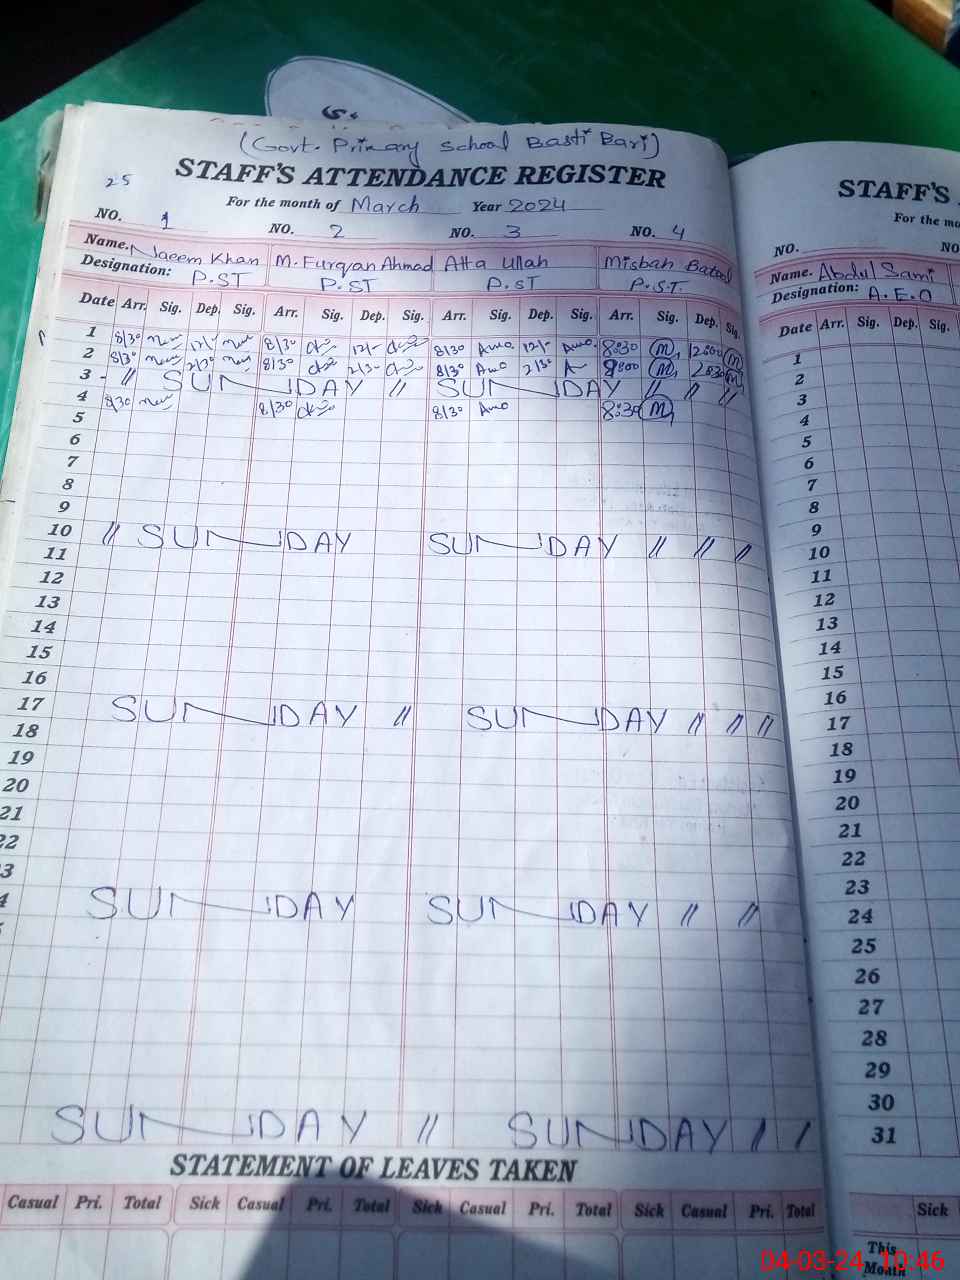 (Govt. Primary School Basti Bari)
STAFF'S ATTENDANCE REGISTER
25
For the month of March Year 2024
NO. 1 NO. 2 NO. 3 NO. 4
Name. Naeem Khan M. Furqan Ahmad Atta Ullah Misbah Batool
Designation: P.ST P.ST P.ST P.S.T.
Date Arr. Sig. Dep. Sig. Arr. Sig. Dep. Sig. Arr. Sig. Dep. Sig. Arr. Sig. Dep. Sig.
1 8/30 12/- 8/30 12/- 8/30 12/- 8:30 M 12:00 M
2 8/30 2/30 8/30 2/30 8/30 2/30 M 2:30 M
3 - // SUNDAY // SUNDAY // // //
4 8/30 8/30 8/30 8:30 M
5
6
7
8
9
10 // SUNDAY SUNDAY // // //
11
12
13
14
15
16
17 SUNDAY // SUNDAY // // //
18
19
20
21
22
3
4 SUNDAY SUNDAY // //
SUNDAY // SUNDAY / /
STATEMENT OF LEAVES TAKEN
Casual Pri. Total Sick Casual Pri. Total Sick Casual Pri. Total Sick Casual Pri. Total
STAFF'S
For the mo
NO. NO
Name. Abdul Sami
Designation: A.E.O
Date Arr. Sig. Dep. Sig.
1
2
3
4
5
6
7
8
9
10
11
12
13
14
15
16
17
18
19
20
21
22
23
24
25
26
27
28
29
30
31
Sick
This
Month
04-03-24 10:46